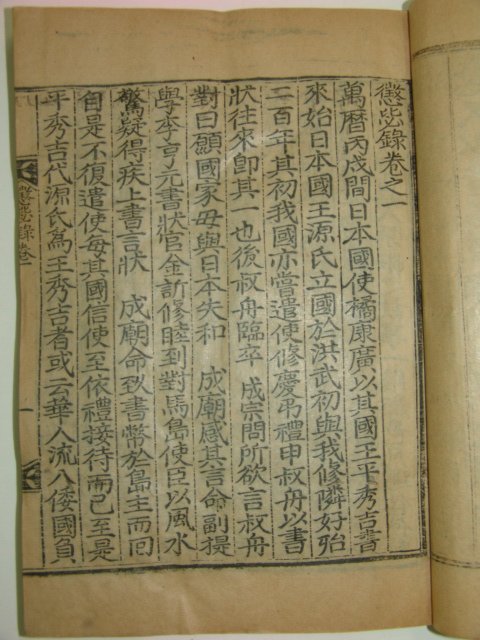 懲毖錄卷之一
萬曆丙戌間日本國使橘康廣以其國王平秀吉書
來始日本國王源氏立國於洪武初與我修隣好殆
二百年其初我國亦嘗遣使修慶弔禮申叔舟以書
狀往來卽其一也後叔舟臨卒 成宗問所欲言叔舟
對曰願國家毋與日本失和 成廟感其言命副提
學李亨元書狀官金訢修睦到對馬島使臣以風水
驚疑得疾上書言狀 成廟命致書幣於島主而回
自是不復遣使每其國信使至依禮接待而已至是
平秀吉代源氏爲王秀吉者或云華人流入倭國負
懲毖錄 卷一
一